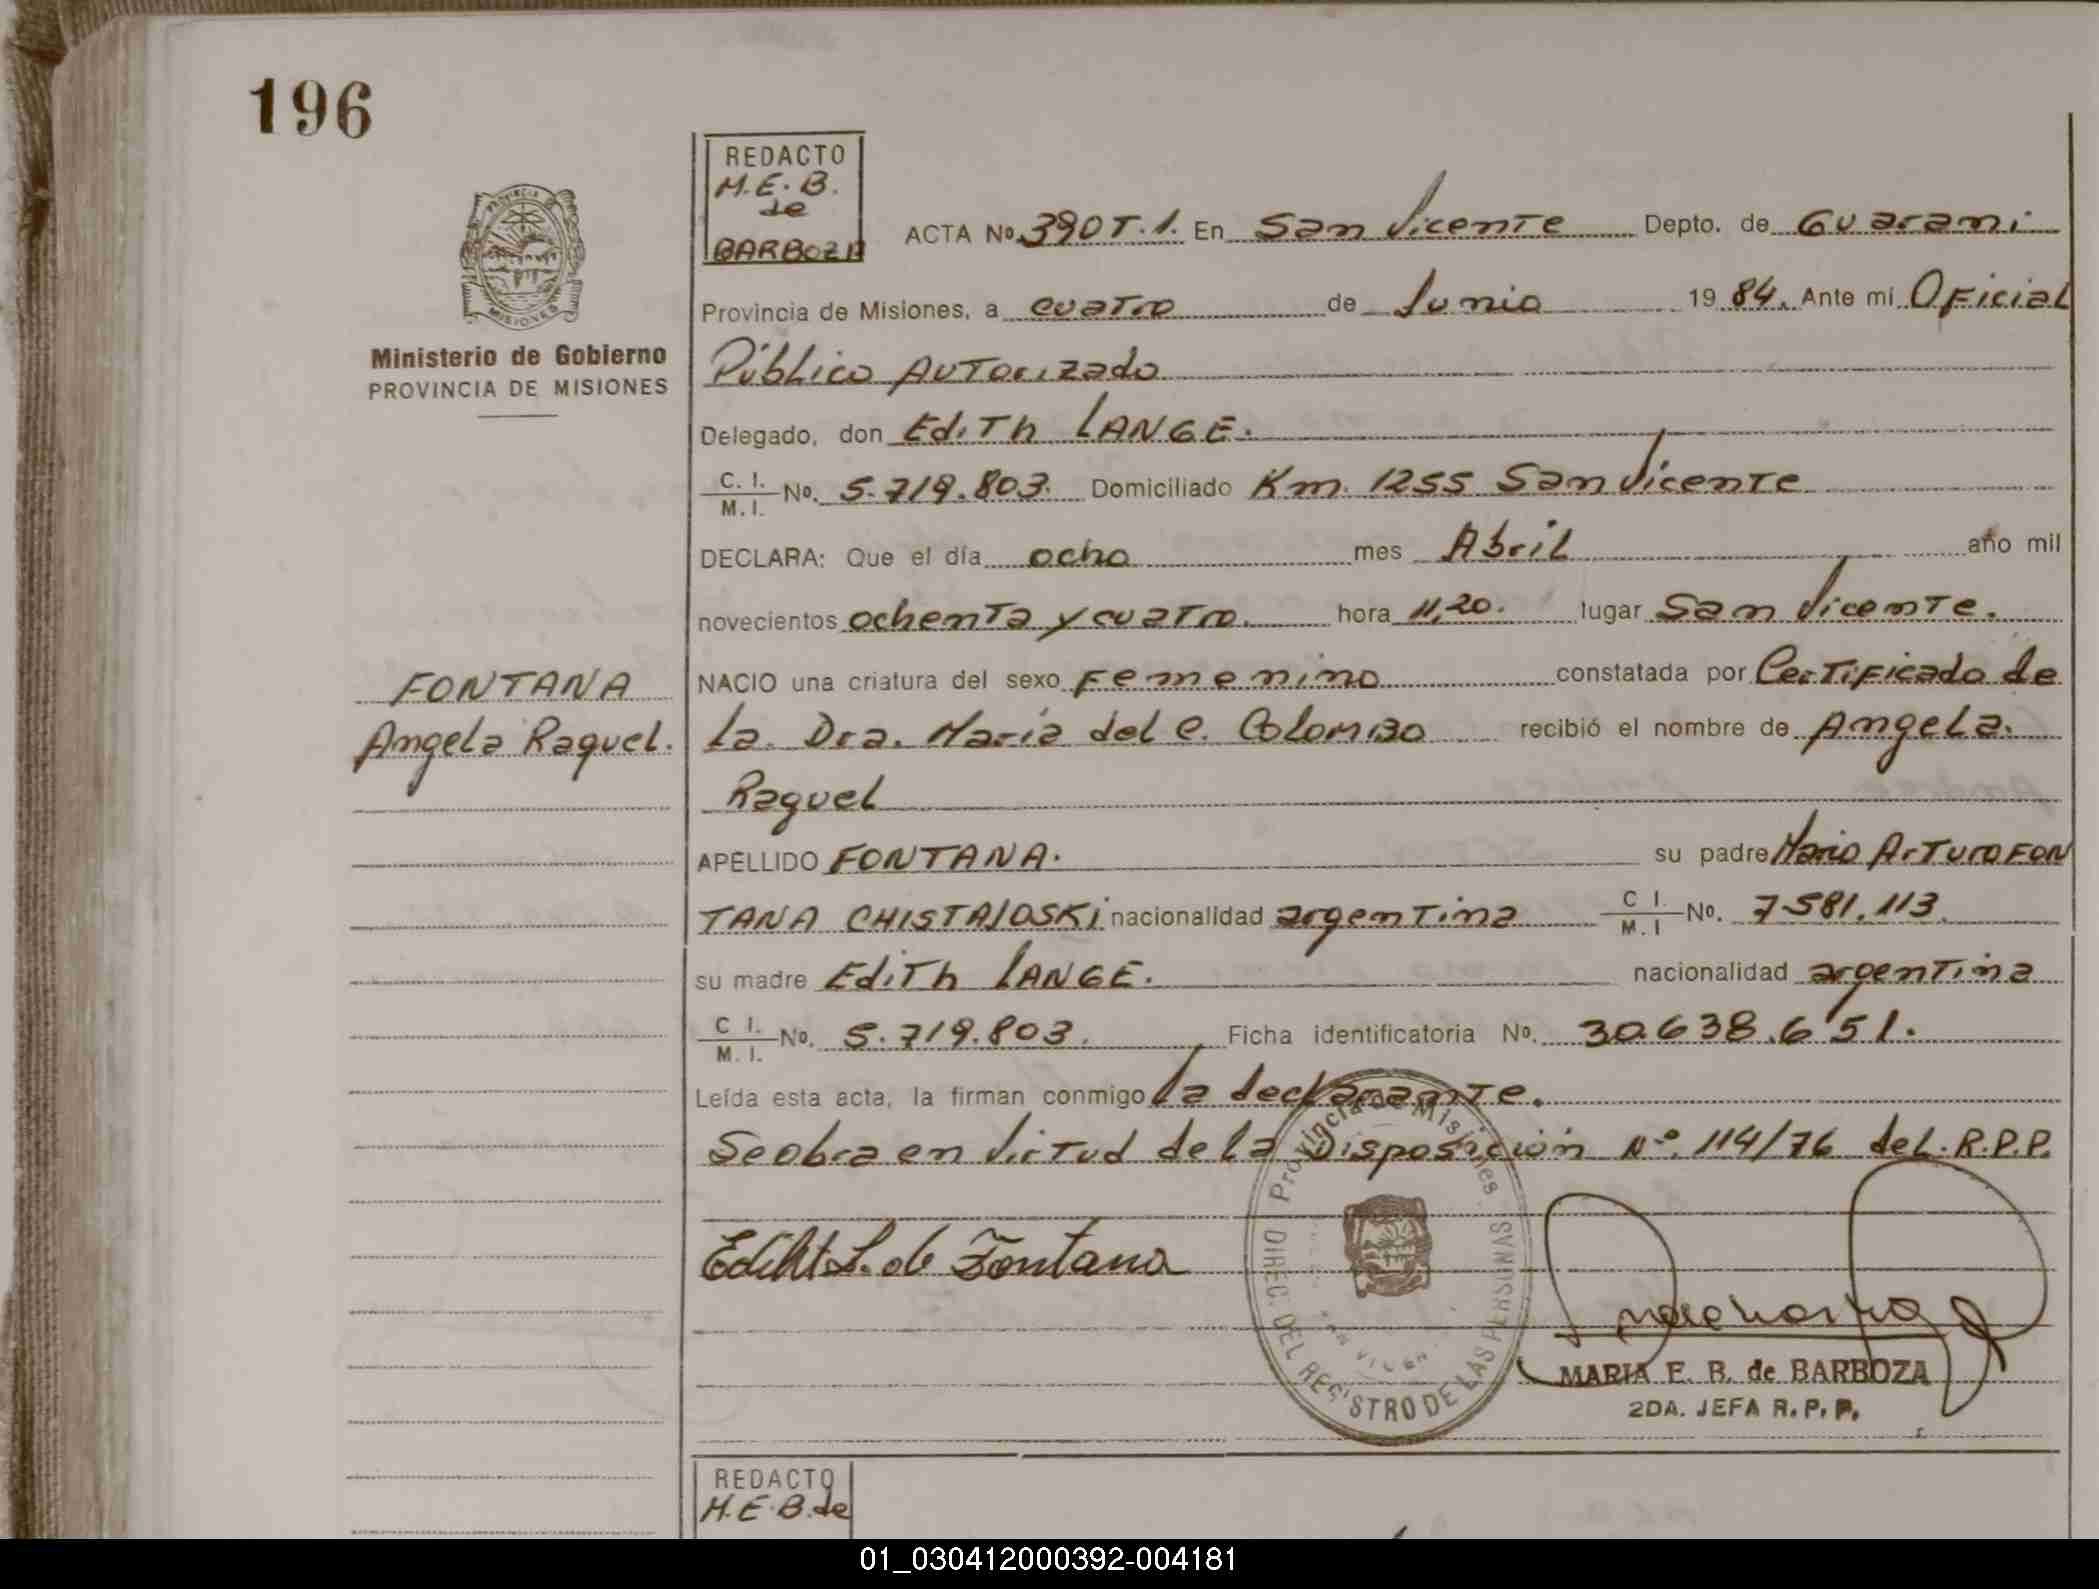 196
REDACTO
M.E.B.
de
BARBOZA
ACTA No. 390 T.1. En San Vicente Depto. de Guarani
Provincia de Misiones, a cuatro de Junio 19 84. Ante mi Oficial
Público Autorizado
PROVINCIA
MISIONES
Ministerio de Gobierno
PROVINCIA DE MISIONES
Delegado, don Edith LANGE.
C. I. / M. I. No. 5.719.803. Domiciliado Km. 1255 San Vicente
DECLARA: Que el día ocho mes Abril año mil
novecientos ochenta y cuatro. hora 11,20. lugar San Vicente.
FONTANA
Angela Raquel.
NACIO una criatura del sexo Femenino constatada por Certificado de
la Dra. María del C. Colombo recibió el nombre de Angela.
Raquel
APELLIDO FONTANA. su padre Mario Arturo FON
TANA CHISTAJOSKI nacionalidad argentina C I. / M. I No. 7.581.113.
su madre Edith LANGE. nacionalidad argentina
C I. / M. I. No. 5.719.803. Ficha identificatoria No. 30.638.651.
Leída esta acta, la firman conmigo la declarante.
Se obra en virtud de la Disposición Nº. 114/76 del R.P.P.
Edith L. de Fontana
Provincia de Misiones
DIREC. DEL REGISTRO DE LAS PERSONAS
MARIA E. B. de BARBOZA
2DA. JEFA R.P.P.
REDACTO
M.E.B. de
01_030412000392-004181